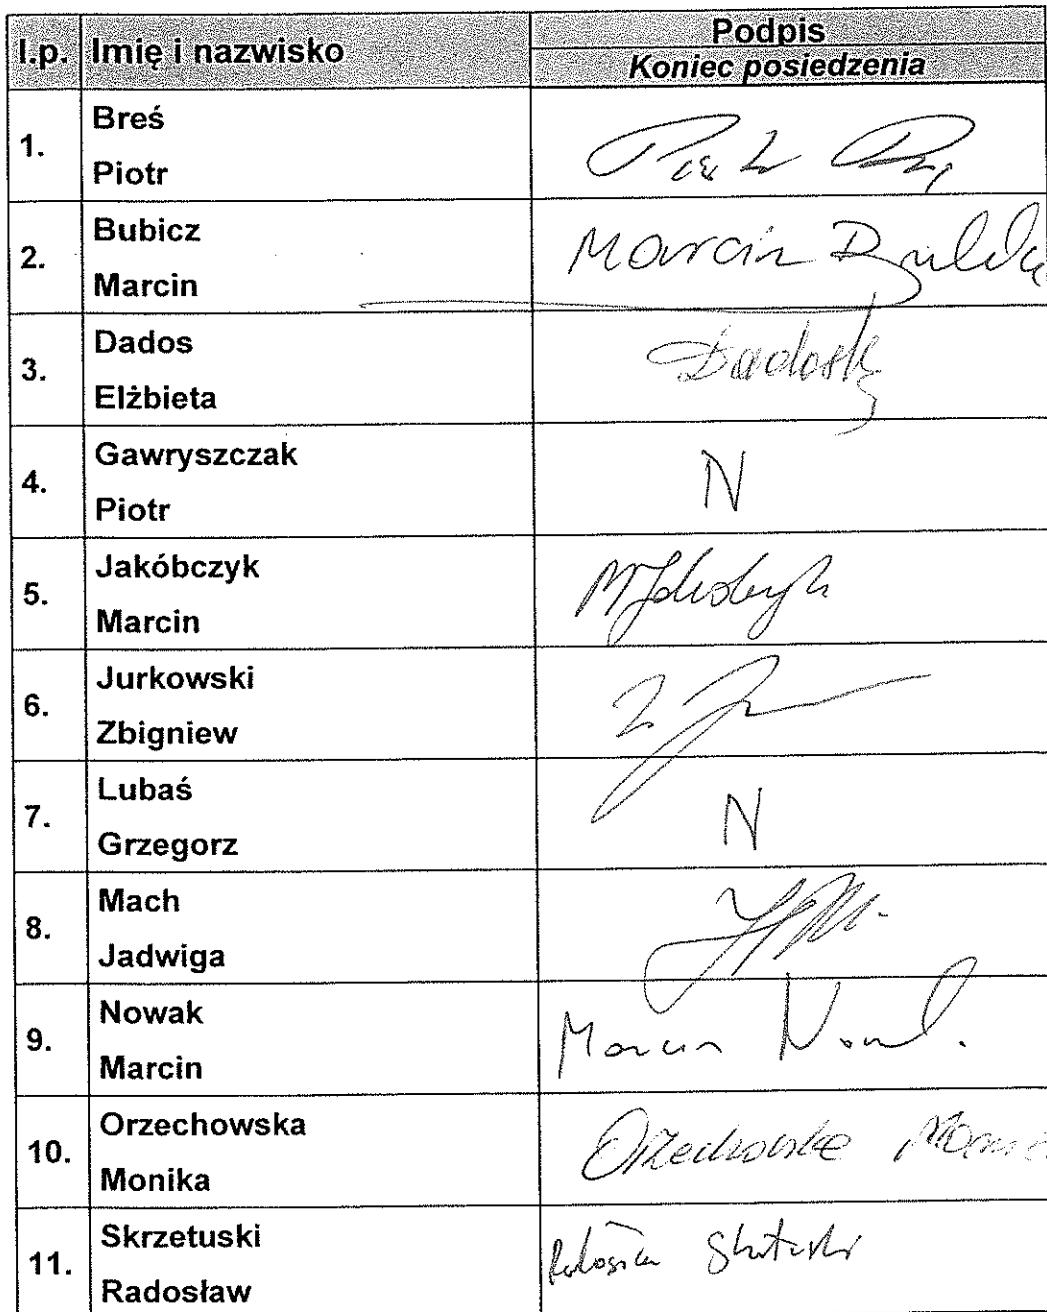 l.p. Imię i nazwisko Podpis
Koniec posiedzenia
1. Breś
Piotr
2. Bubicz
Marcin
Marcin
3. Dados
Elżbieta
4. Gawryszczak
Piotr
N
5. Jakóbczyk
Marcin
6. Jurkowski
Zbigniew
7. Lubaś
Grzegorz
N
8. Mach
Jadwiga
9. Nowak
Marcin
Marcin
10. Orzechowska
Monika
Orzechowska
11. Skrzetuski
Radosław